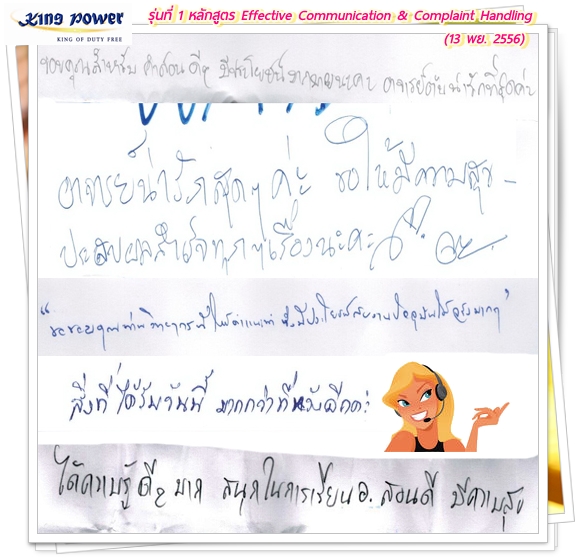 King Power
KING OF DUTY FREE
รุ่นที่ 1 หลักสูตร Effective Communication & Complaint Handling
(13 พย. 2556)
ขอบคุณสำหรับ คำสอน ดีๆ มีประโยชน์มากมายนะคะ อาจารย์ น่ารักที่สุดค่ะ
อาจารย์น่ารักสุดๆ ค่ะ ขอให้มีความสุข -
ประสบผลสำเร็จทุกๆเรื่องนะคะ
“ขอขอบคุณท่านวิทยากรที่ให้คำแนะนำ ซึ่งมีประโยชน์ ปัจจุบันได้จริงมากๆ”
สิ่งที่ได้รับวันนี้ มากกว่าที่หวังอีกค่ะ
ได้ความรู้ ดีๆ มาก สนุกในการเรียน อ. สอนดี มีความสุข